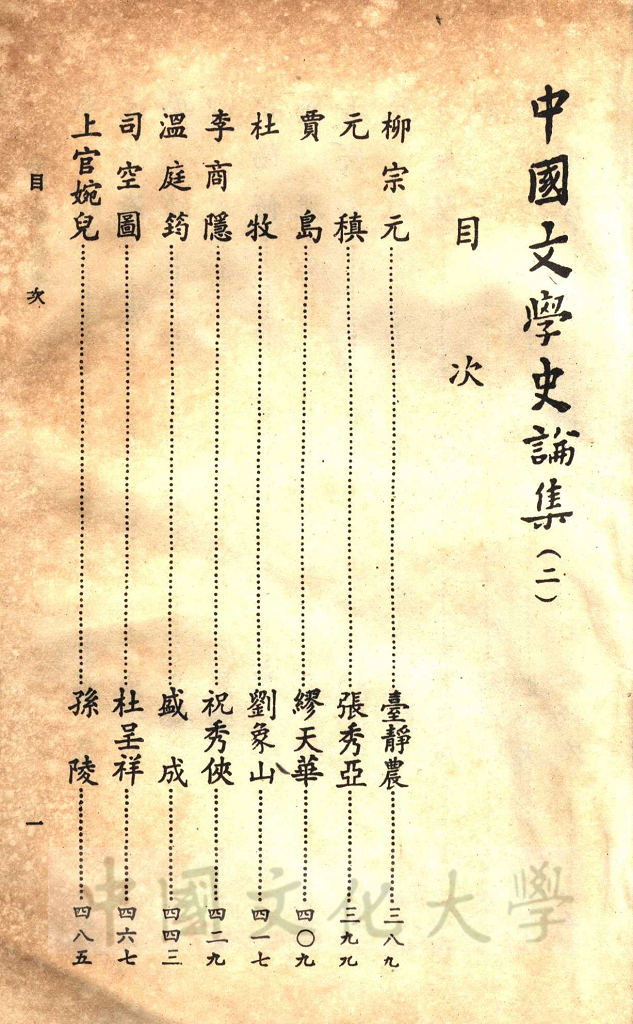 中國文學史論集(二)
目次
柳宗元 臺靜農 三八九
元稹 張秀亞 三九九
賈島 繆天華 四〇九
杜牧 劉象山 四一七
李商隱 祝秀俠 四二九
溫庭筠 盛成 四四三
司空圖 杜呈祥 四六七
上官婉兒 孫陵 四八五
目次 一
中國文化大學